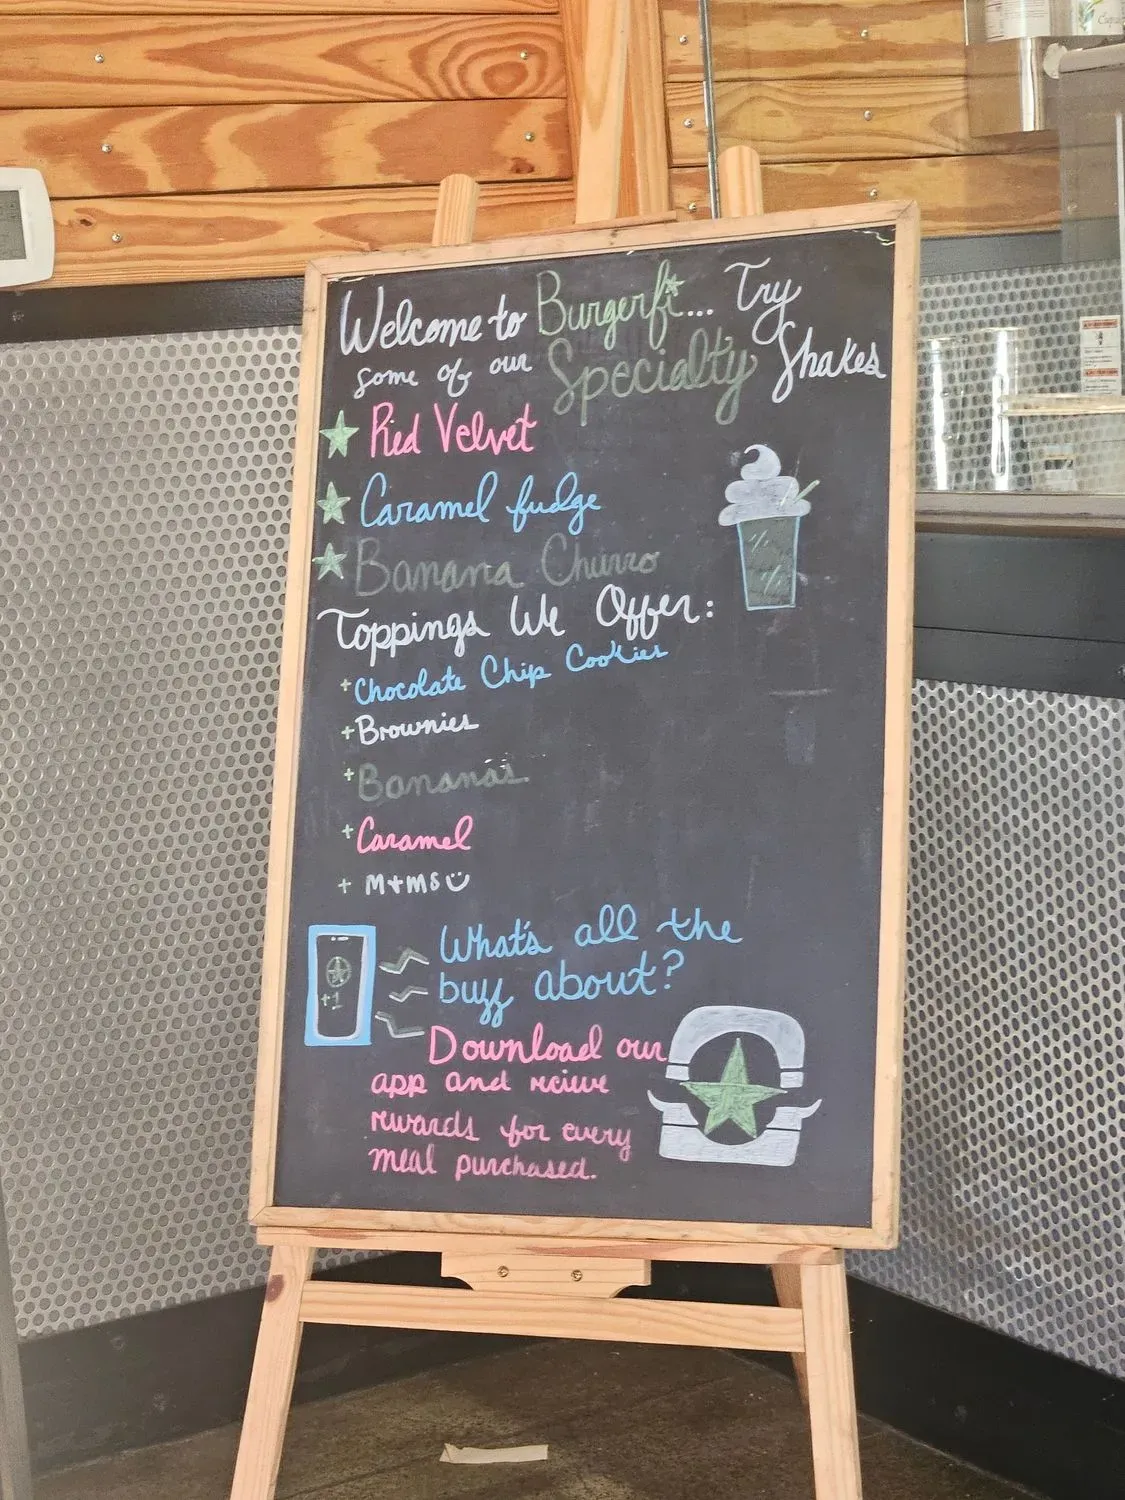 Welcome to Burgerfi... Try
some of our Specialty Shakes
Red Velvet
Caramel fudge
Banana Churro
Toppings We Offer:
+Chocolate Chip Cookies
+Brownies
+Bananas
+Caramel
+ M+Ms
+1
What's all the
buzz about?
Download our
app and recieve
rewards for every
meal purchased.